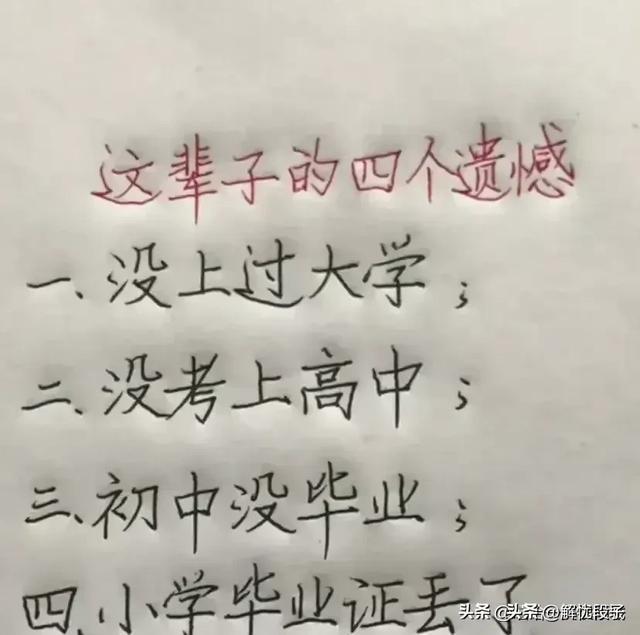 这辈子的四个遗憾
一、没上过大学；
二、没考上高中；
三、初中没毕业；
四、小学毕业证丢了
头条 @解忧段子